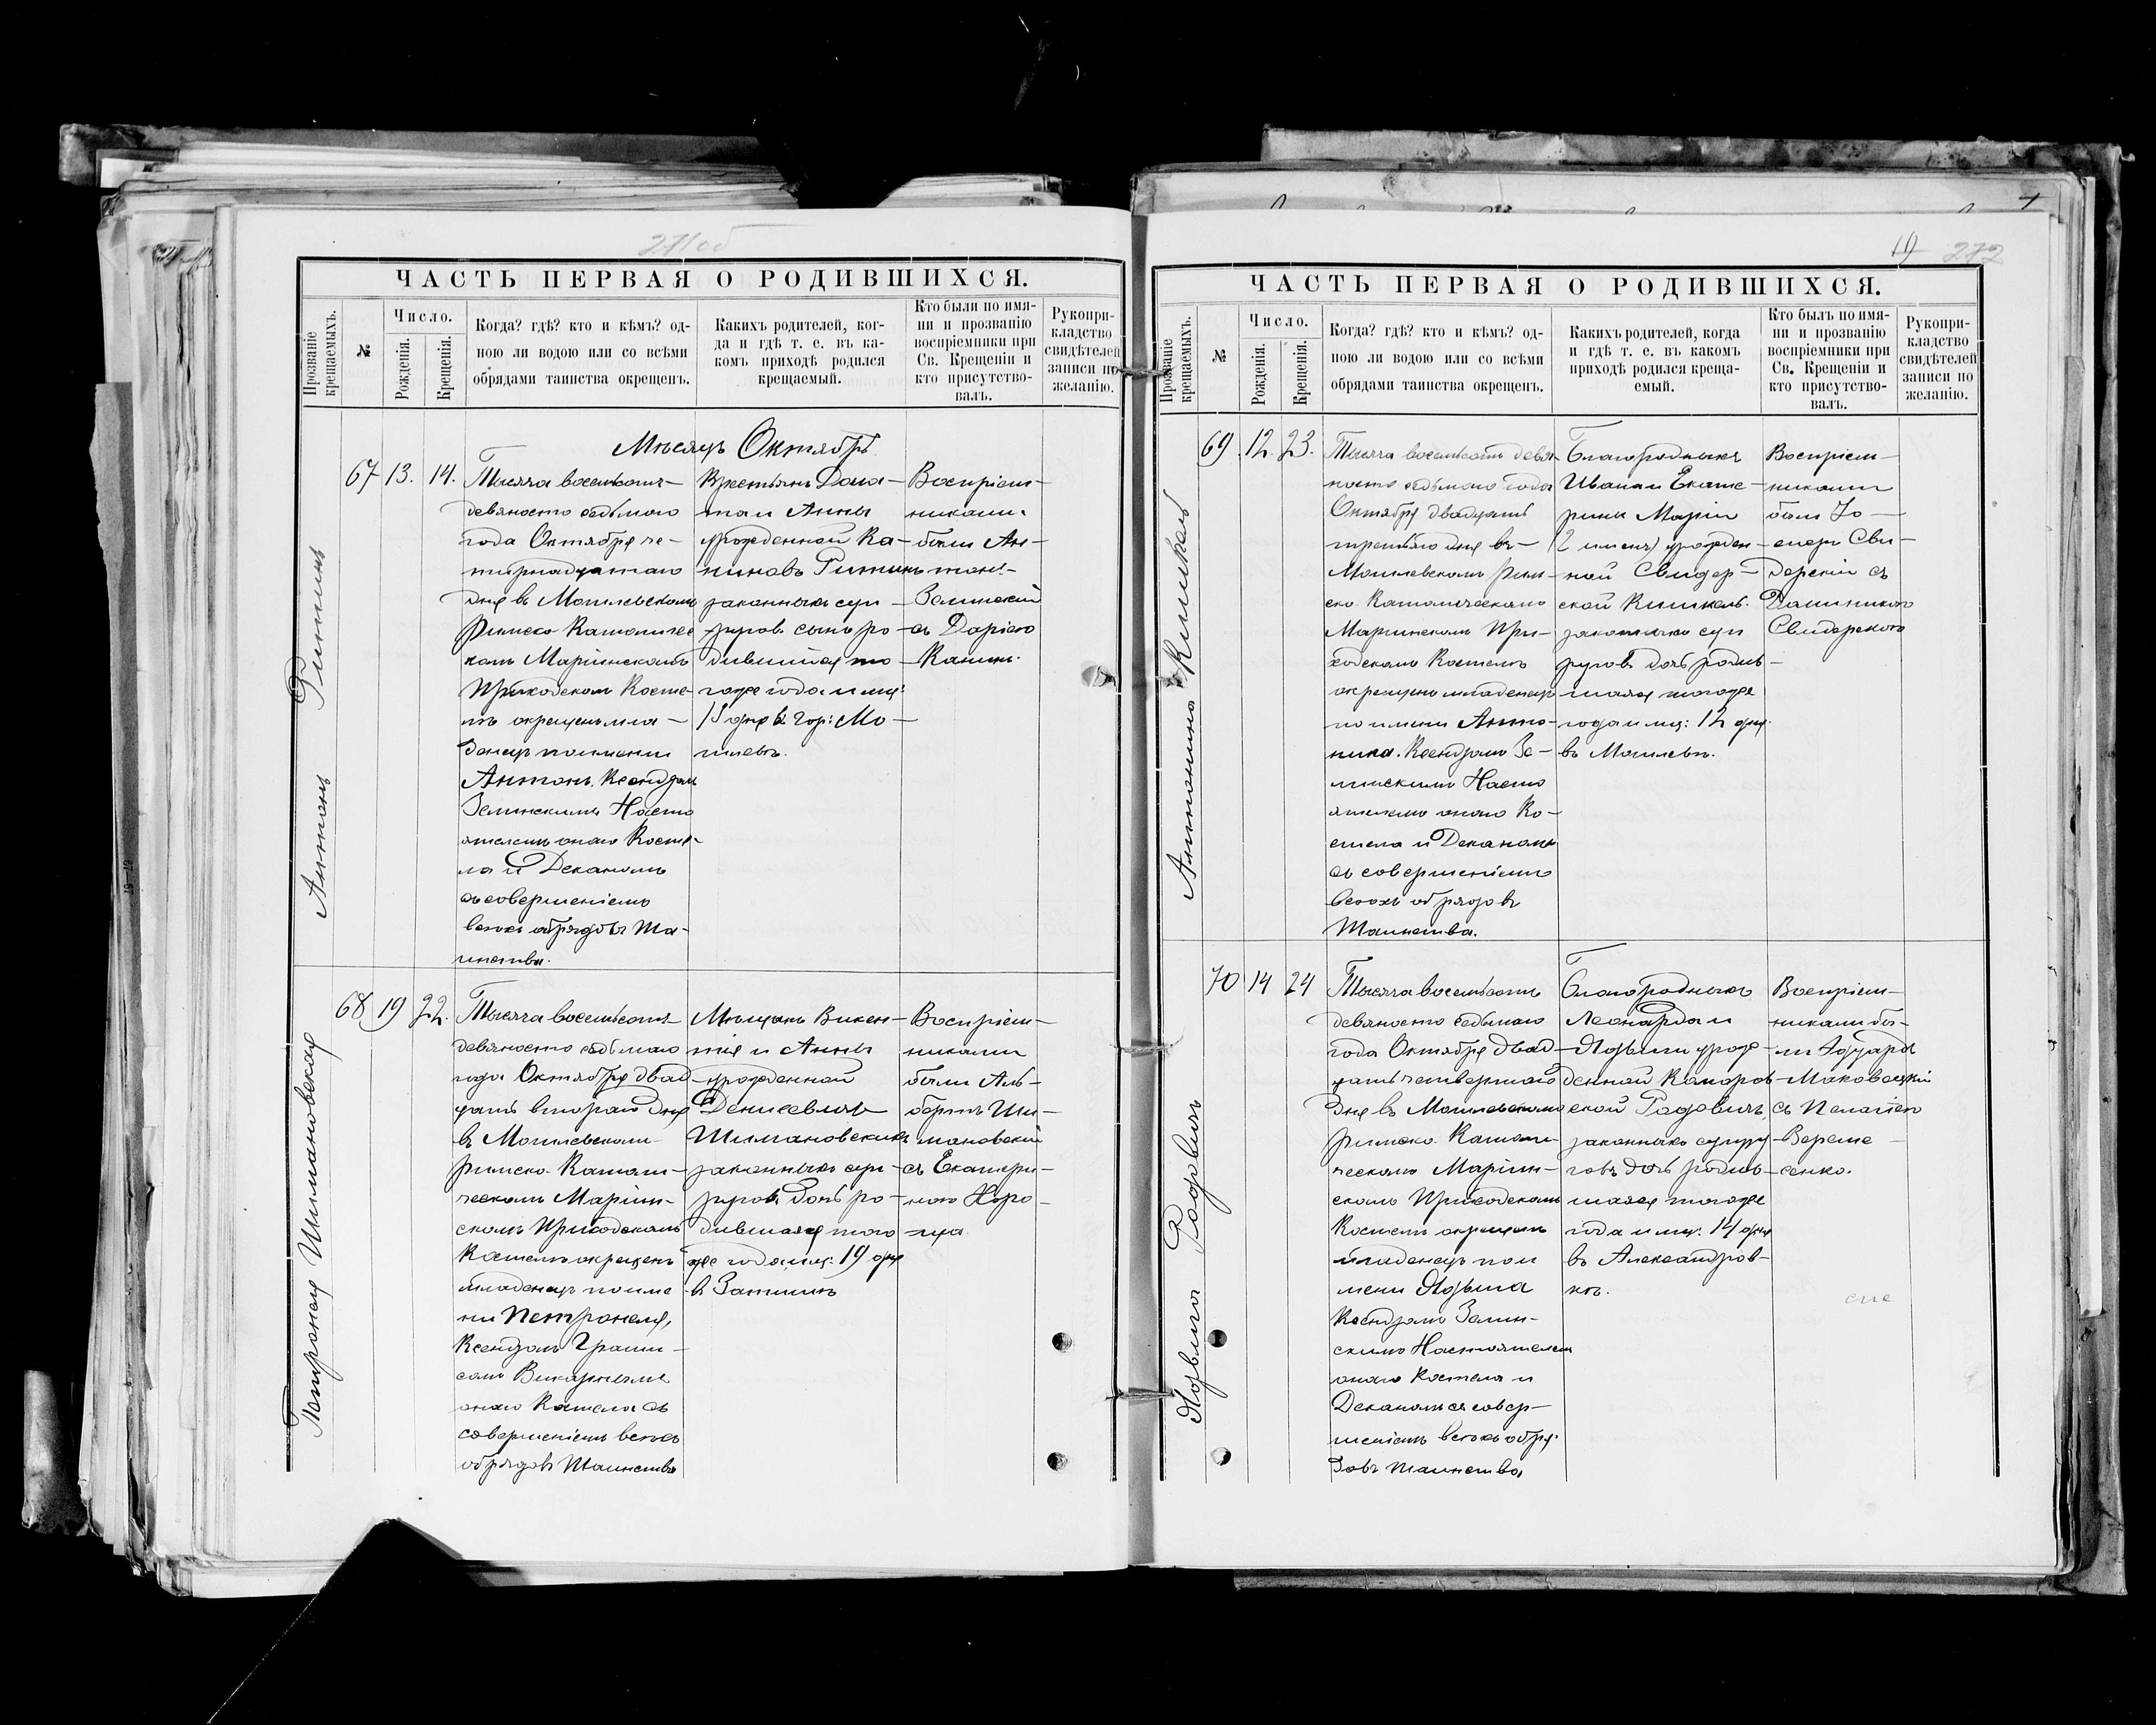 271об
ЧАСТЬ ПЕРВАЯ О РОДИВШИХСЯ.
Прозваніе крещаемыхъ.
№
Число.
Рожденія.
Крещенія.
Когда? гдѣ? кто и кѣмъ? од-
ною ли водою или со всѣми
обрядами таинства окрещенъ.
Какихъ родителей, ког-
да и гдѣ т. е. въ ка-
комъ приходѣ родился
крещаемый.
Кто были по имя-
ни и прозванію
воспріемники при
Св. Крещеніи и
кто присутство-
валъ.
Рукопри-
кладство
свидѣтелей
записи по
желанію.
Мѣсяцъ Октябрь
Антонъ
67
13.
14.
Тысяча восемьсотъ
девяносто седьмого
года Октября че-
тырнадцатаго
дня въ Могилевскомъ
Римско-Католичес
комъ Маріинскомъ
Приходскомъ Косте-
лѣ окрещенъ мла-
денецъ по имени
Антонъ. Ксендзомъ
Зелинскимъ Насто
ятелемъ онаго Косте-
ла и Деканомъ
съ совершеніемъ
всѣхъ обрядовъ Та-
инства.
Крестьянъ Дона-
та и Анны
урожденной Ка-
ниновъ
законныхъ суп
руговъ сынъ ро-
дившійся то
гоже года и мц:
13 дня въ гор: Мо-
гилевѣ.
Воспріем-
никами
были Ан-
тон:
Зелинскій
съ Дарією
Канинъ.
Петронеля Шимановская
68
19
22.
Тысяча восемьсотъ
девяносто седьмого
года Октября двад-
цать второго дня
въ Могилевскомъ
Римско-Католи-
ческомъ Маріин-
скомъ Приходскомъ
Костелѣ окрещенъ
младенецъ по име
ни Петронеля,
Ксендзомъ
Викарнымъ
онаго Костела съ
совершеніемъ всѣхъ
обрядовъ Таинства
Мѣщанъ Викен-
тія и Анны
урожденной
Денисевичъ
Шимановскихъ
законныхъ суп-
руговъ дочь ро-
дившаяся того
же года и мц: 19 дня
въ Затишьѣ
Воспріем-
никами
были Аль-
бертъ Ши-
мановскій
съ Екатери-
ною
19 272
ЧАСТЬ ПЕРВАЯ О РОДИВШИХСЯ.
Прозваніе крещаемыхъ.
№
Число.
Рожденія.
Крещенія.
Когда? гдѣ? кто и кѣмъ? од-
ною ли водою или со всѣми
обрядами таинства окрещенъ.
Какихъ родителей, когда
и гдѣ т. е. въ какомъ
приходѣ родился креща-
емый.
Кто былъ по имя-
ни и прозванію
воспріемники при
Св. Крещеніи и
кто присутство-
валъ.
Рукопри-
кладство
свидѣтелей
записи по
желанію.
Антонина Кишкель
69
12
23.
Тысяча восемьсотъ девя-
носто седьмого года
Октября двадцать
третьяго дня въ
Могилевскомъ Рим-
ско-Католическомъ
Маріинскомъ При-
ходскомъ Костелѣ
окрещенъ младенецъ
по имени Анто-
нина. Ксендзомъ Зе-
линскимъ Насто
ятелемъ онаго Ко-
стела и Деканомъ
съ совершеніемъ
всѣхъ обрядовъ
Таинства.
Благородныхъ
Ивана и Екате-
рины Маріи
(2 именъ) урожден-
ной Свидер-
ской Кишкель.
законныхъ суп
руговъ дочь родив-
шаяся тогоже
года и мц: 12 дня
въ Могилевѣ.
Воспріем-
никами
были Іо-
сифъ Сви-
дерскій съ
Свидерскою
Ядвига Радовичъ
70
14
24
Тысяча восемьсотъ
девяносто седьмого
года Октября двад-
цать четвертаго
дня въ Могилевскомъ
Римско-Католи-
ческомъ Маріин-
скомъ Приходскомъ
Костелѣ окрещенъ
младенецъ по и
мени Ядвига
Ксендзомъ Зелин-
скимъ Настоятелемъ
онаго Костела и
Деканомъ съ совер-
шеніемъ всѣхъ обря-
довъ таинства
Благородныхъ
Леонарда и
Ядвиги урож-
денной Каморов-
ской Радовичъ,
законныхъ супру-
говъ дочь родив-
шаяся тогоже
года и мц: 14 дня
въ Александров-
кѣ.
Воспріем-
никами бы-
ли Эдуардъ
Маковецкій
съ Пелагією
Вереме-
сенко.